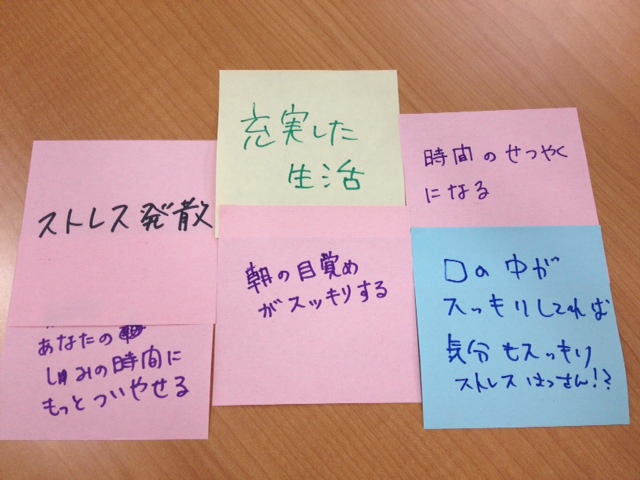 充実した
生活
時間のせつやく
になる
ストレス発散
朝の目覚め
がスッキリする
口の中が
スッキリしてれば
気分もスッキリ
ストレスはっさん!?
あなたの
しゅみの時間に
もっとついやせる